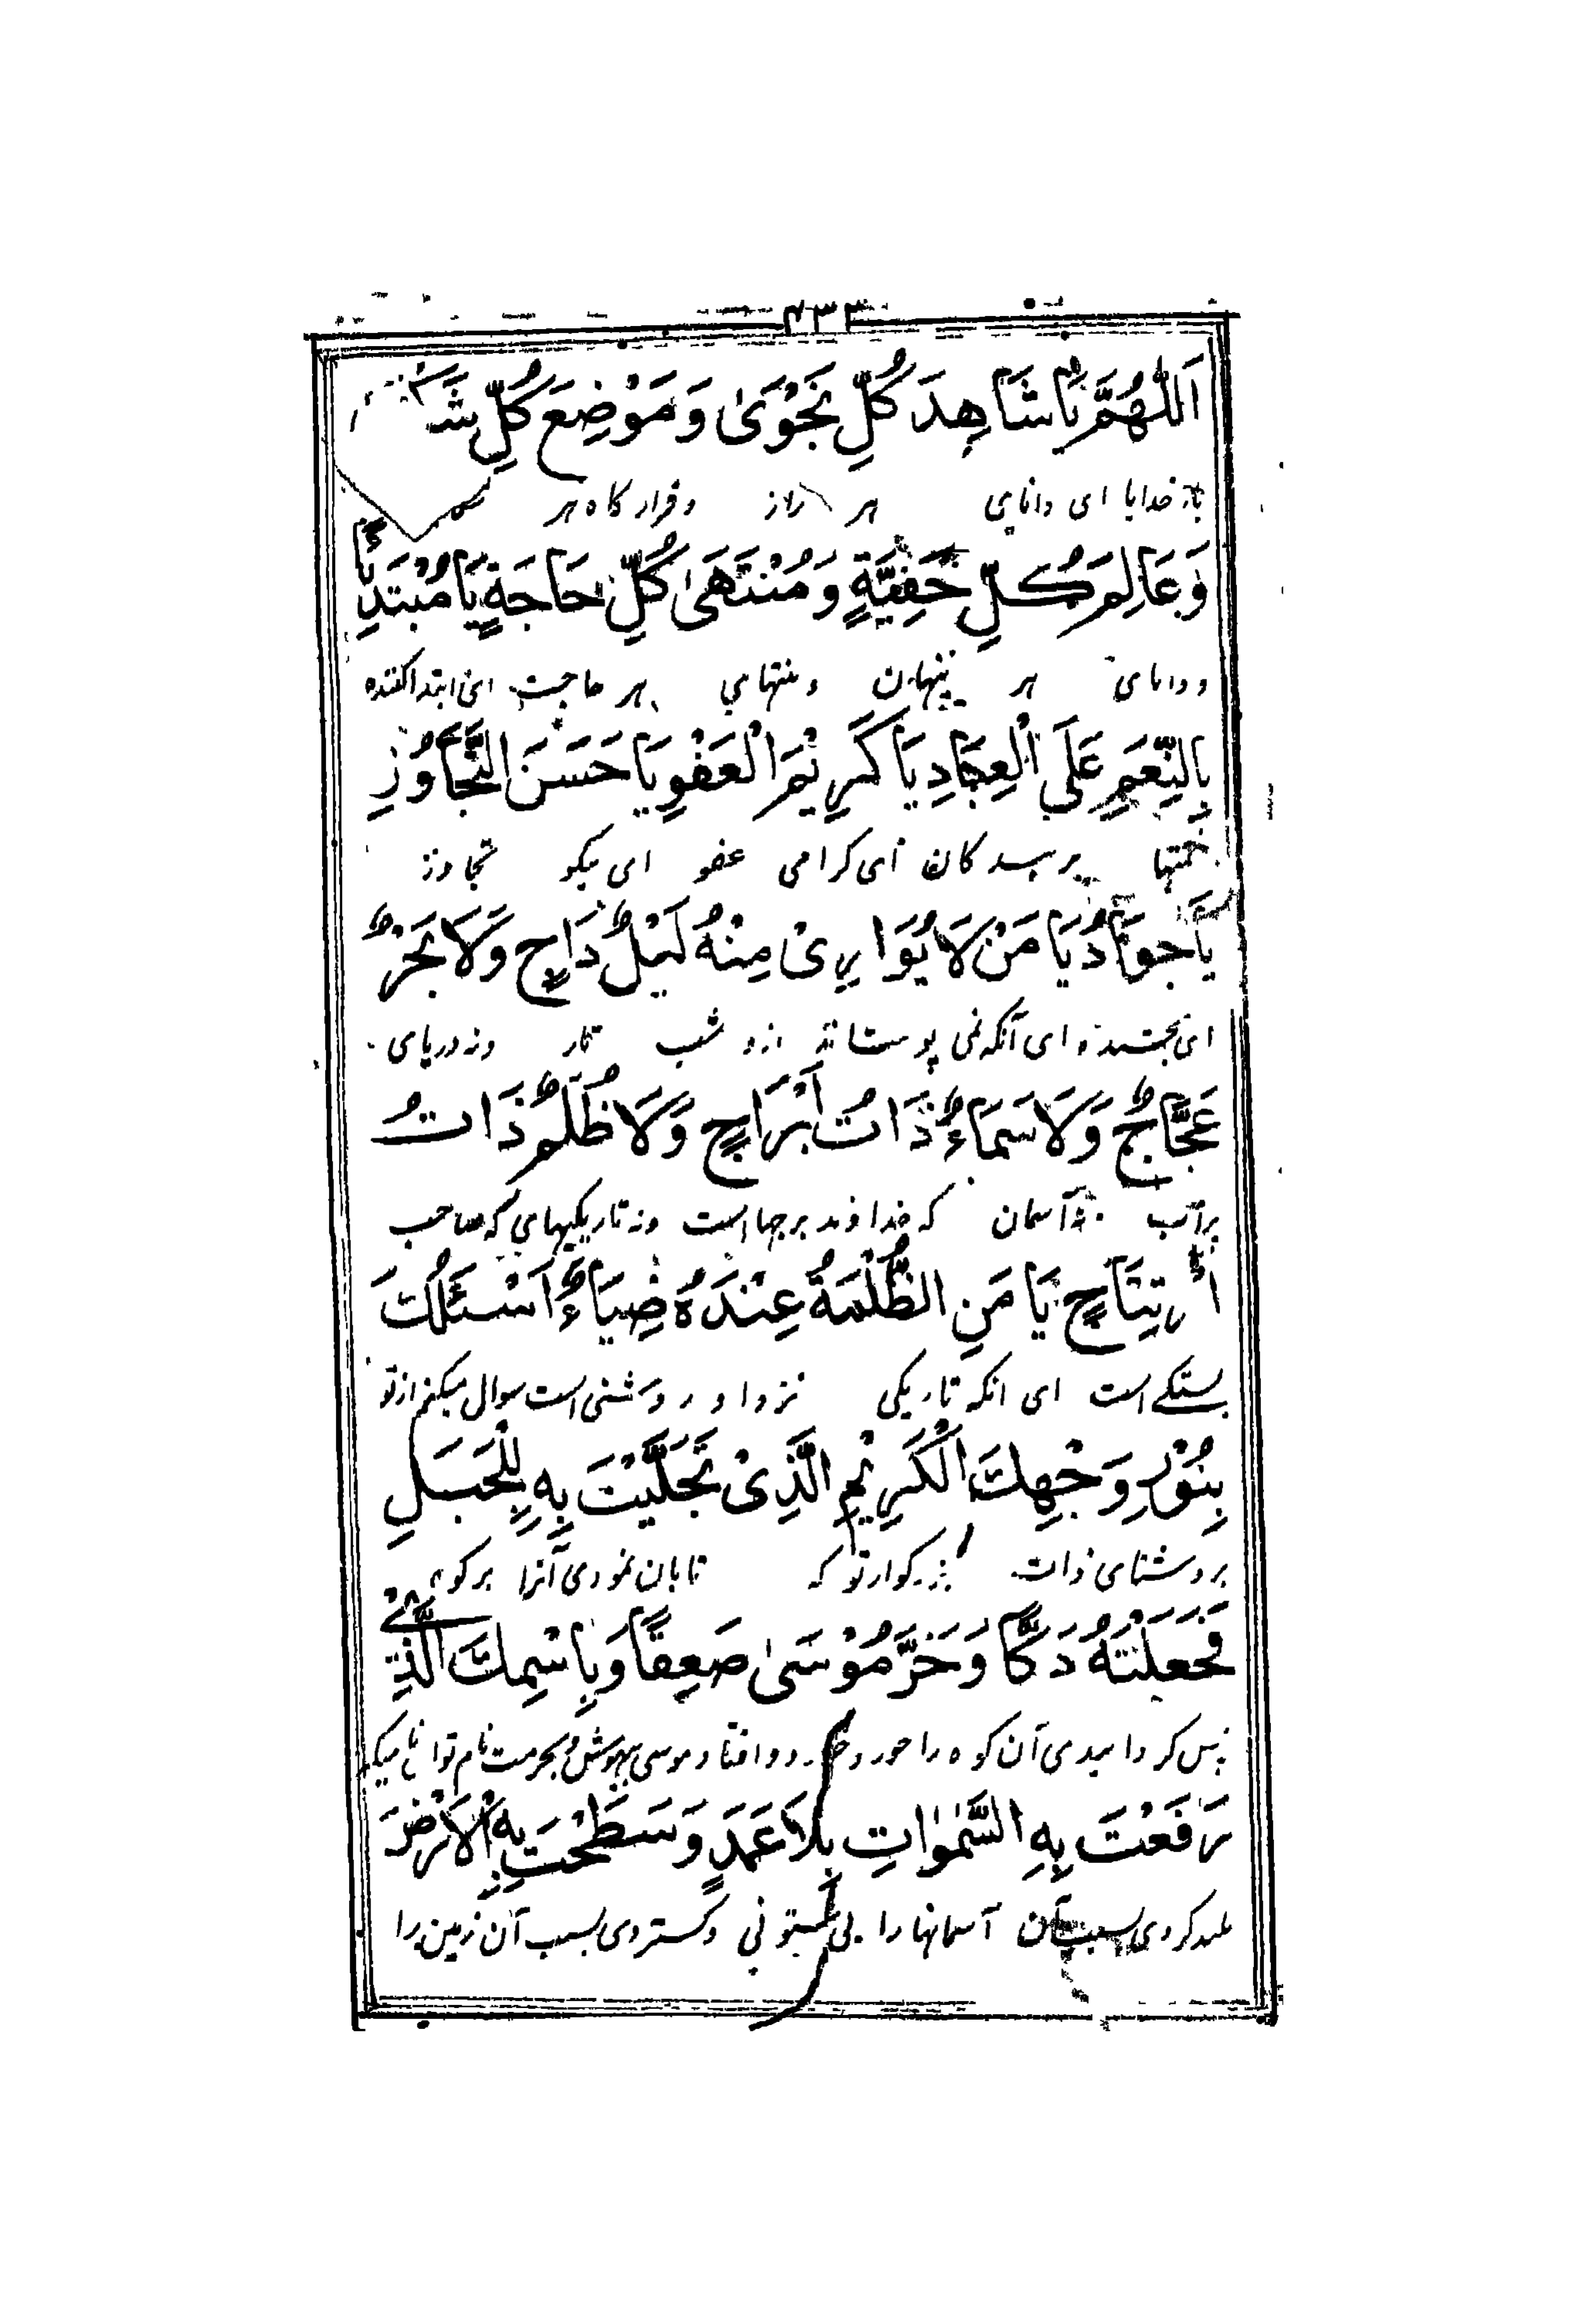 ۴۳۳
اَللّٰهُمَّ يَا شَاهِدَ كُلِّ نَجْوَىٰ وَمَوْضِعَ كُلِّ
بار خدایا ای دانای هر راز و قرار کاه هر
وَعَالِمَ كُلِّ خَفِيَّةٍ وَمُنْتَهَىٰ كُلِّ حَاجَةٍ يَا مُبْتَدِئًا
و دانای هر پنهان و منتهای هر حاجت ای ابتدا کننده
بِالنِّعَمِ عَلَى الْعِبَادِ يَا كَرِيْمَ الْعَفْوِ يَا حَسَنَ التَّجَاوُزِ
بر بندکان ای کرامی عفو ای نیکو تجاوز
يَا جَوَادُ يَا مَنْ لَا يُوَارِىْ مِنْهُ لَيْلٌ دَاجٍ وَلَا بَحْرٌ
ای بخشنده ای آنکه نمی پوشاند ازو شب تار و نه دریای
عَجَّاجٌ وَلَا سَمَاءٌ ذَاتُ اَبْرَاجٍ وَلَا ظُلَمٌ ذَاتُ
پر آب نه آسمان که خداوند برجها است و نه تاریکیهای که صاحب
ارْتِتَاجٍ يَا مَنِ الظُّلْمَةُ عِنْدَهُ ضِيَاءٌ اَسْئَلُكَ
بستکے است ای انکه تاریکی نزد او روشنی است سوال میکنم از تو
بِنُوْرِ وَجْهِكَ الْكَرِيْمِ الَّذِىْ تَجَلَّيْتَ بِهٖ لِلْجَبَلِ
بروشنای ذات بزرکوار تو که تابان نمودی آنرا بر کوه
فَجَعَلْتَهُ دَكًّا وَخَرَّ مُوْسَىٰ صَعِقًا وَبِاسْمِكَ الَّذِىْ
پس کردانیدی آن کوه را خورد و افتاد موسی بیهوش و بحرمت نام تو
رَفَعْتَ بِهِ السَّمٰوَاتِ بِلَا عَمَدٍ وَسَطَحْتَ بِهِ الْاَرْضَ
بلند کردی بسبب آن آسمانها را بی ستونی و کستردی بسبب آن زمین را